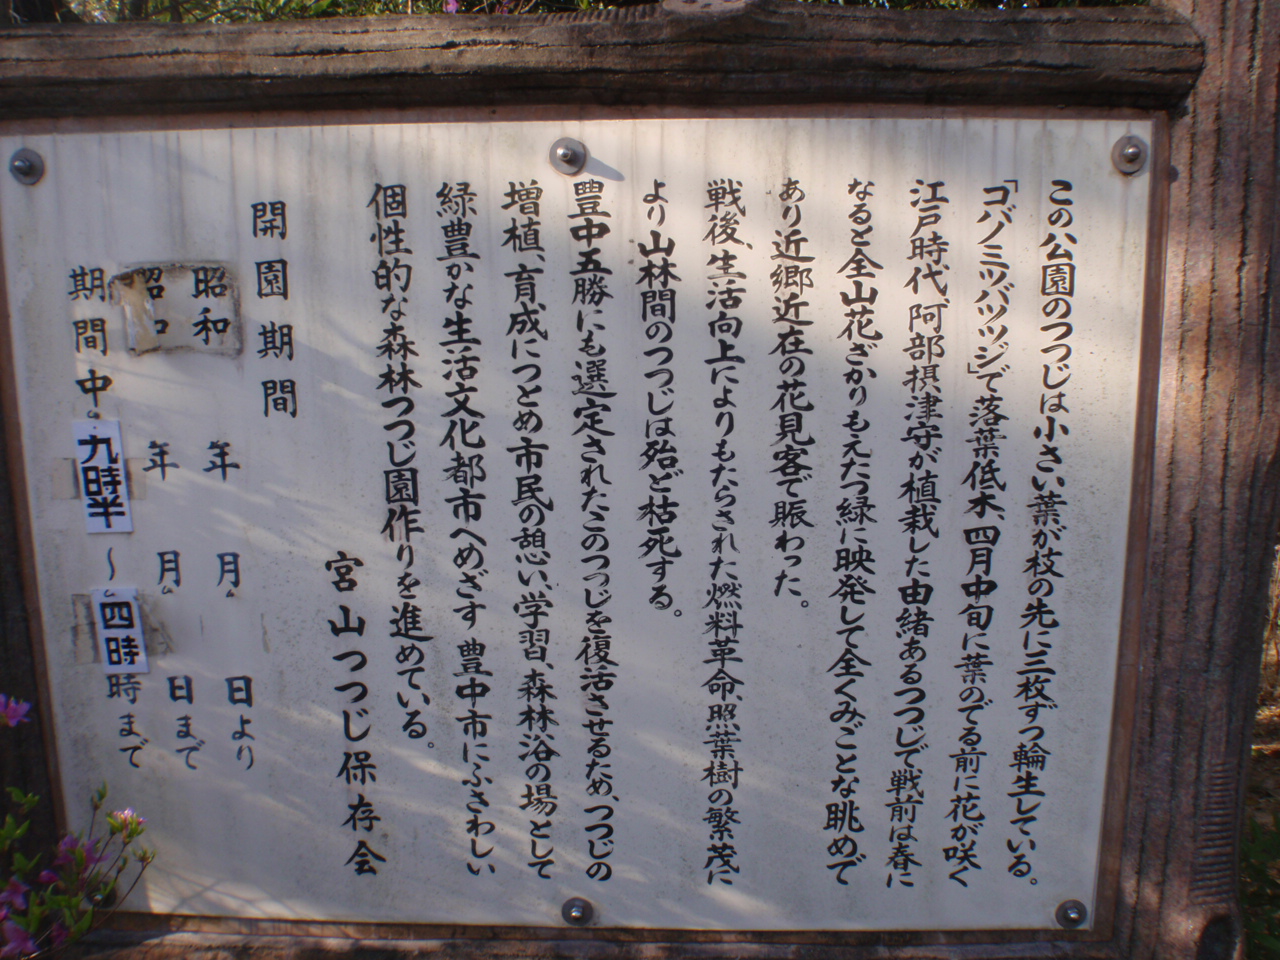 この公園のつつじは小さい葉が枝の先に三枚ずつ輪生している。
「コバノミツバツツジ」で落葉低木、四月中旬に葉のでる前に花が咲く
江戸時代、阿部摂津守が植栽した由緒あるつつじで戦前は春に
なると全山花ざかりもえたつ緑に映発して全くみごとな眺めで
あり近郷近在の花見客で賑わった。
戦後、生活向上によりもたらされた燃料革命、照葉樹の繁茂に
より山林間のつつじは殆ど枯死する。
豊中五勝にも選定されたこのつつじを復活させるため、つつじの
増植、育成につとめ市民の憩い、学習、森林浴の場として
緑豊かな生活文化都市へめざす豊中市にふさわしい
個性的な森林つつじ園作りを進めている。
宮山つつじ保存会
開園期間
昭和 年 月 日より
昭和 年 月 日まで
期間中 九時半～四時時まで